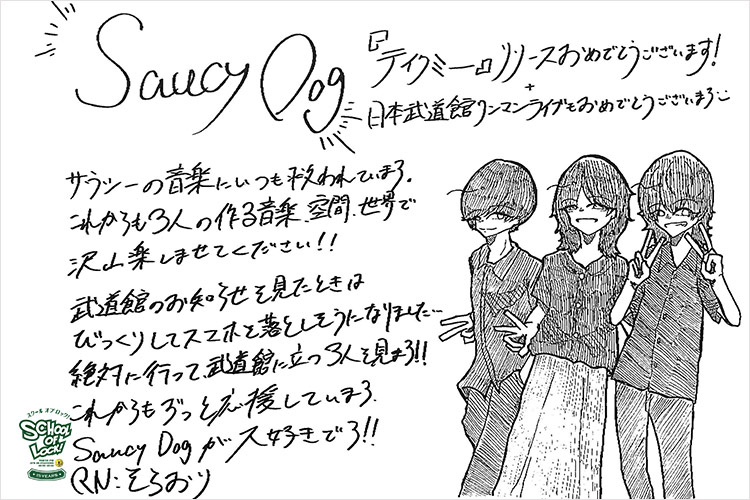 Saucy Dog
『テイクミー』リリースおめでとうございます!
+
日本武道館ワンマンライブもおめでとうございます
サウシーの音楽にいつも救われています。
これからも3人の作る音楽、空間、世界で
沢山楽しませてください!!
武道館のお知らせを見たときは
びっくりしてスマホを落としそうになりました…
絶対に行って、武道館に立つ3人を見ます!!
これからもずっと応援しています。
Saucy Dogが大好きです!!
RN:そらおり
スクールオブロック!
SCHOOL
OF
LOCK!